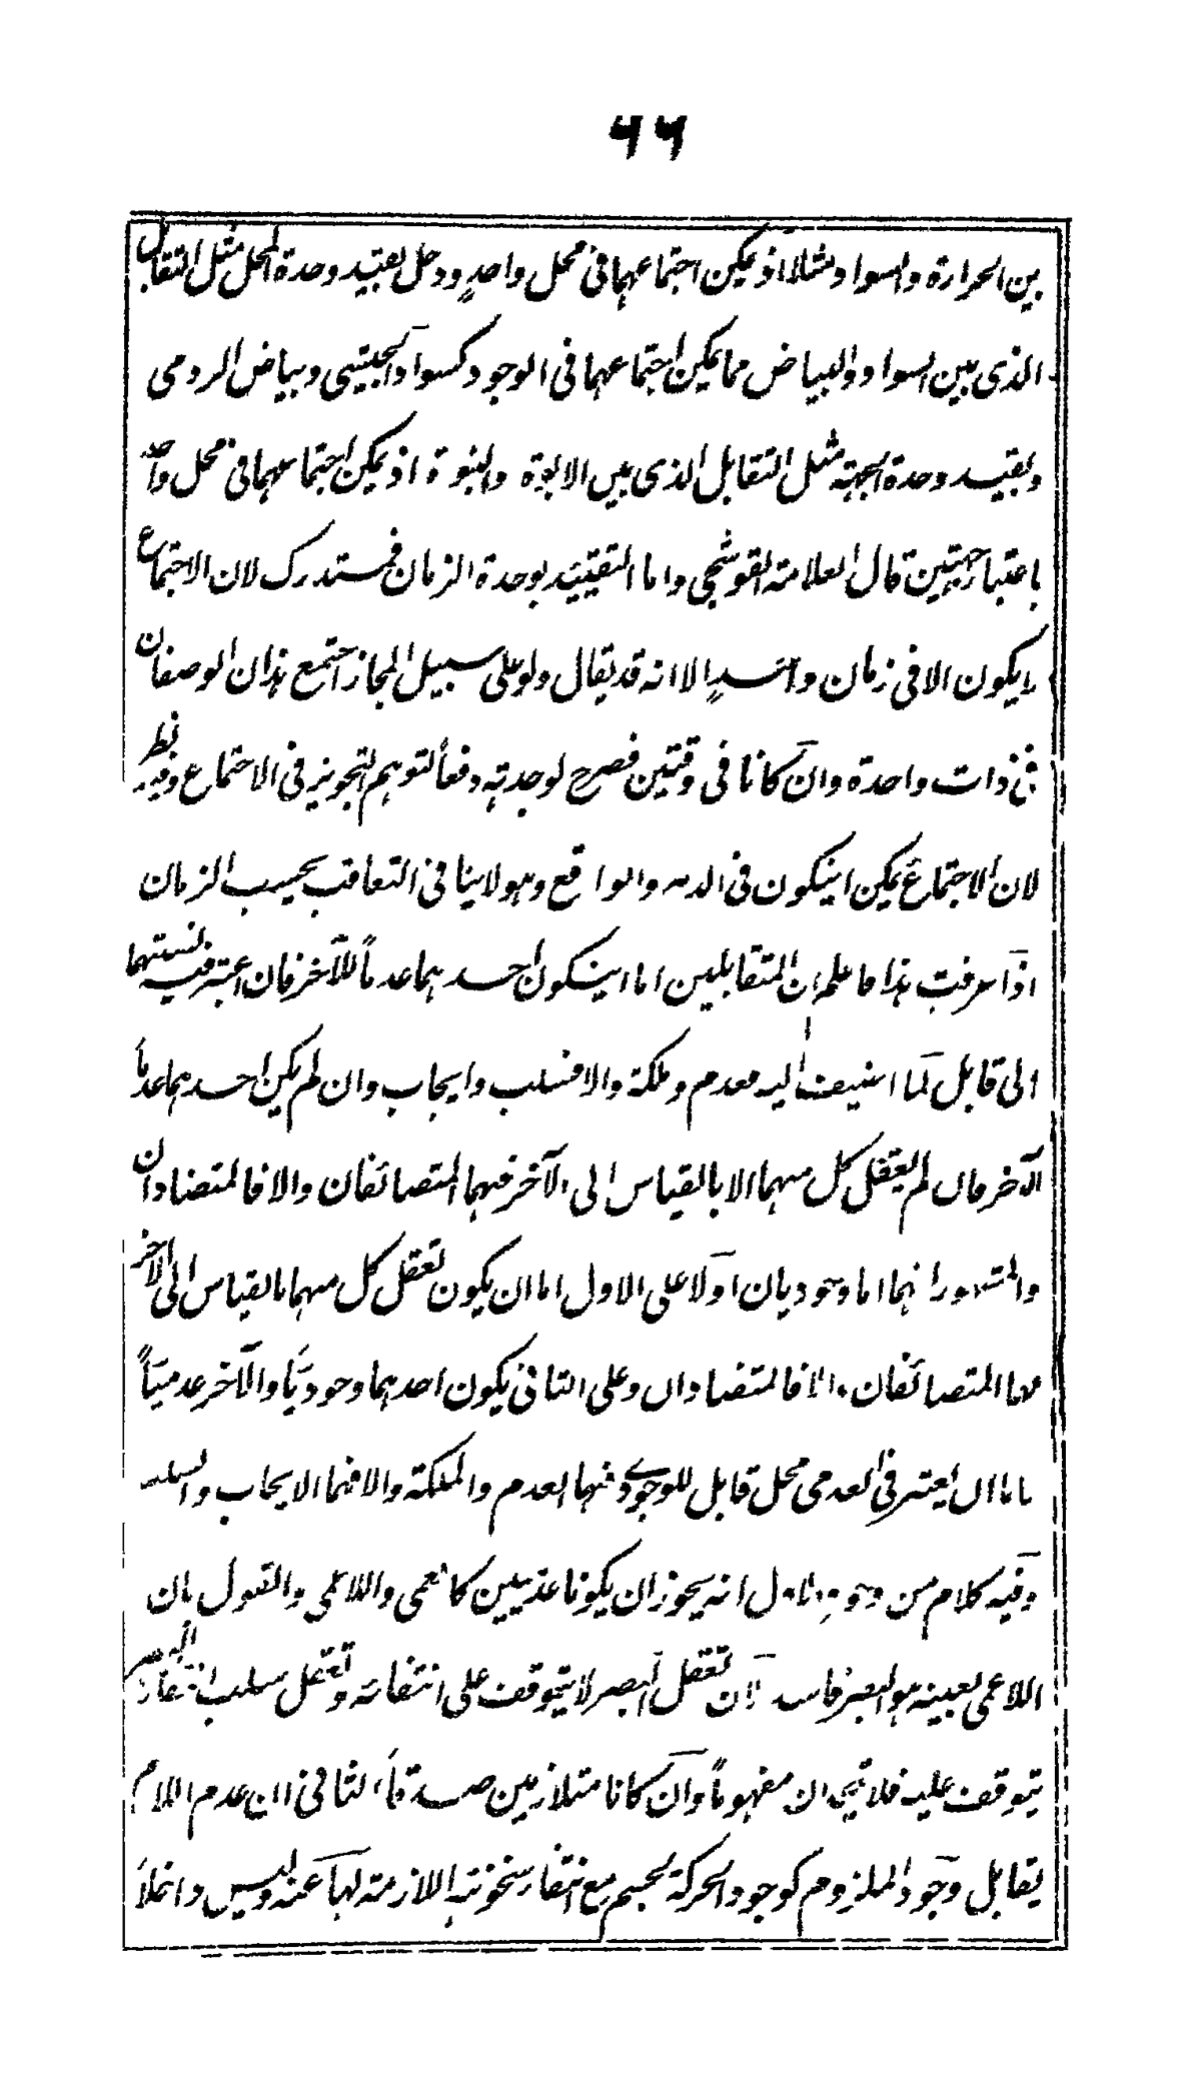 ٦٦
بين الحرارة والسواد مثلا اذ يمكن اجتماعهما فى محل واحدٍ ودخل بقيد وحدة المحل مثل التقابل
الذى بين السواد والبياض مما يمكن اجتماعهما فى الوجود كسواد الحبشى وبياض الرومى
وبقيد وحدة الجهة مثل التقابل الذى بين الابوة والبنوة اذ يمكن اجتماعهما فى محل واحد
باعتبار جهتين قال العلامة القوشجى واما التقييد بوحدة الزمان فمستدرك لان الاجتماع
لا يكون الا فى زمان واحدٍ الا انه قد يقال ولو على سبيل المجاز اجتمع هذان الوصفان
فى ذات واحدة وان كانا فى وقتين فصرح لوحدته دفعاً لتوهم التجويز فى الاجتماع وفيه نظر
لان الاجتماع يمكن ان يكون فى الدهر والواقع وهو لا ينافى التعاقب بحسب الزمان
اذا عرفت هذا فاعلم ان المتقابلين اما ان يكون احدهما عدماً للآخر فان اعتبر فيه نسبتهما
الى قابل لما اضيف اليه فعدم وملكة والا فسلب وايجاب وان لم يكن احدهما عدماً
للآخر فان لم يعقل كل منهما الا بالقياس الى الآخر فهما المتضائفان والا فالمتضادان
والمشهور انهما اما وجوديان اولا على الاول اما ان يكون تعقل كل منهما بالقياس الى الآخر
فهما المتضائفان والا فالمتضادان وعلى الثانى يكون احدهما وجوديّا والآخر عدميّاً
فاما ان يعتبر فى العدمى محل قابل للوجودى فهما العدم والملكة والا فهما الايجاب والسلب
وفيه كلام من وجوه الاول انه يجوز ان يكونا عدميين كالعمى واللاعمى والقول بان
اللاعمى بعينه هو البصر فاسد لان تعقل البصر لا يتوقف على انتفائه وتعقل سلب انتفاء البصر
يتوقف عليه فلا يتحدان مفهوماً وان كانا متلازمين صدقاً الثانى ان عدم اللازم
يقابل وجود الملزوم كوجود الحركة لجسم مع انتفاء سخونته اللازمة لها عنه وليس داخلا